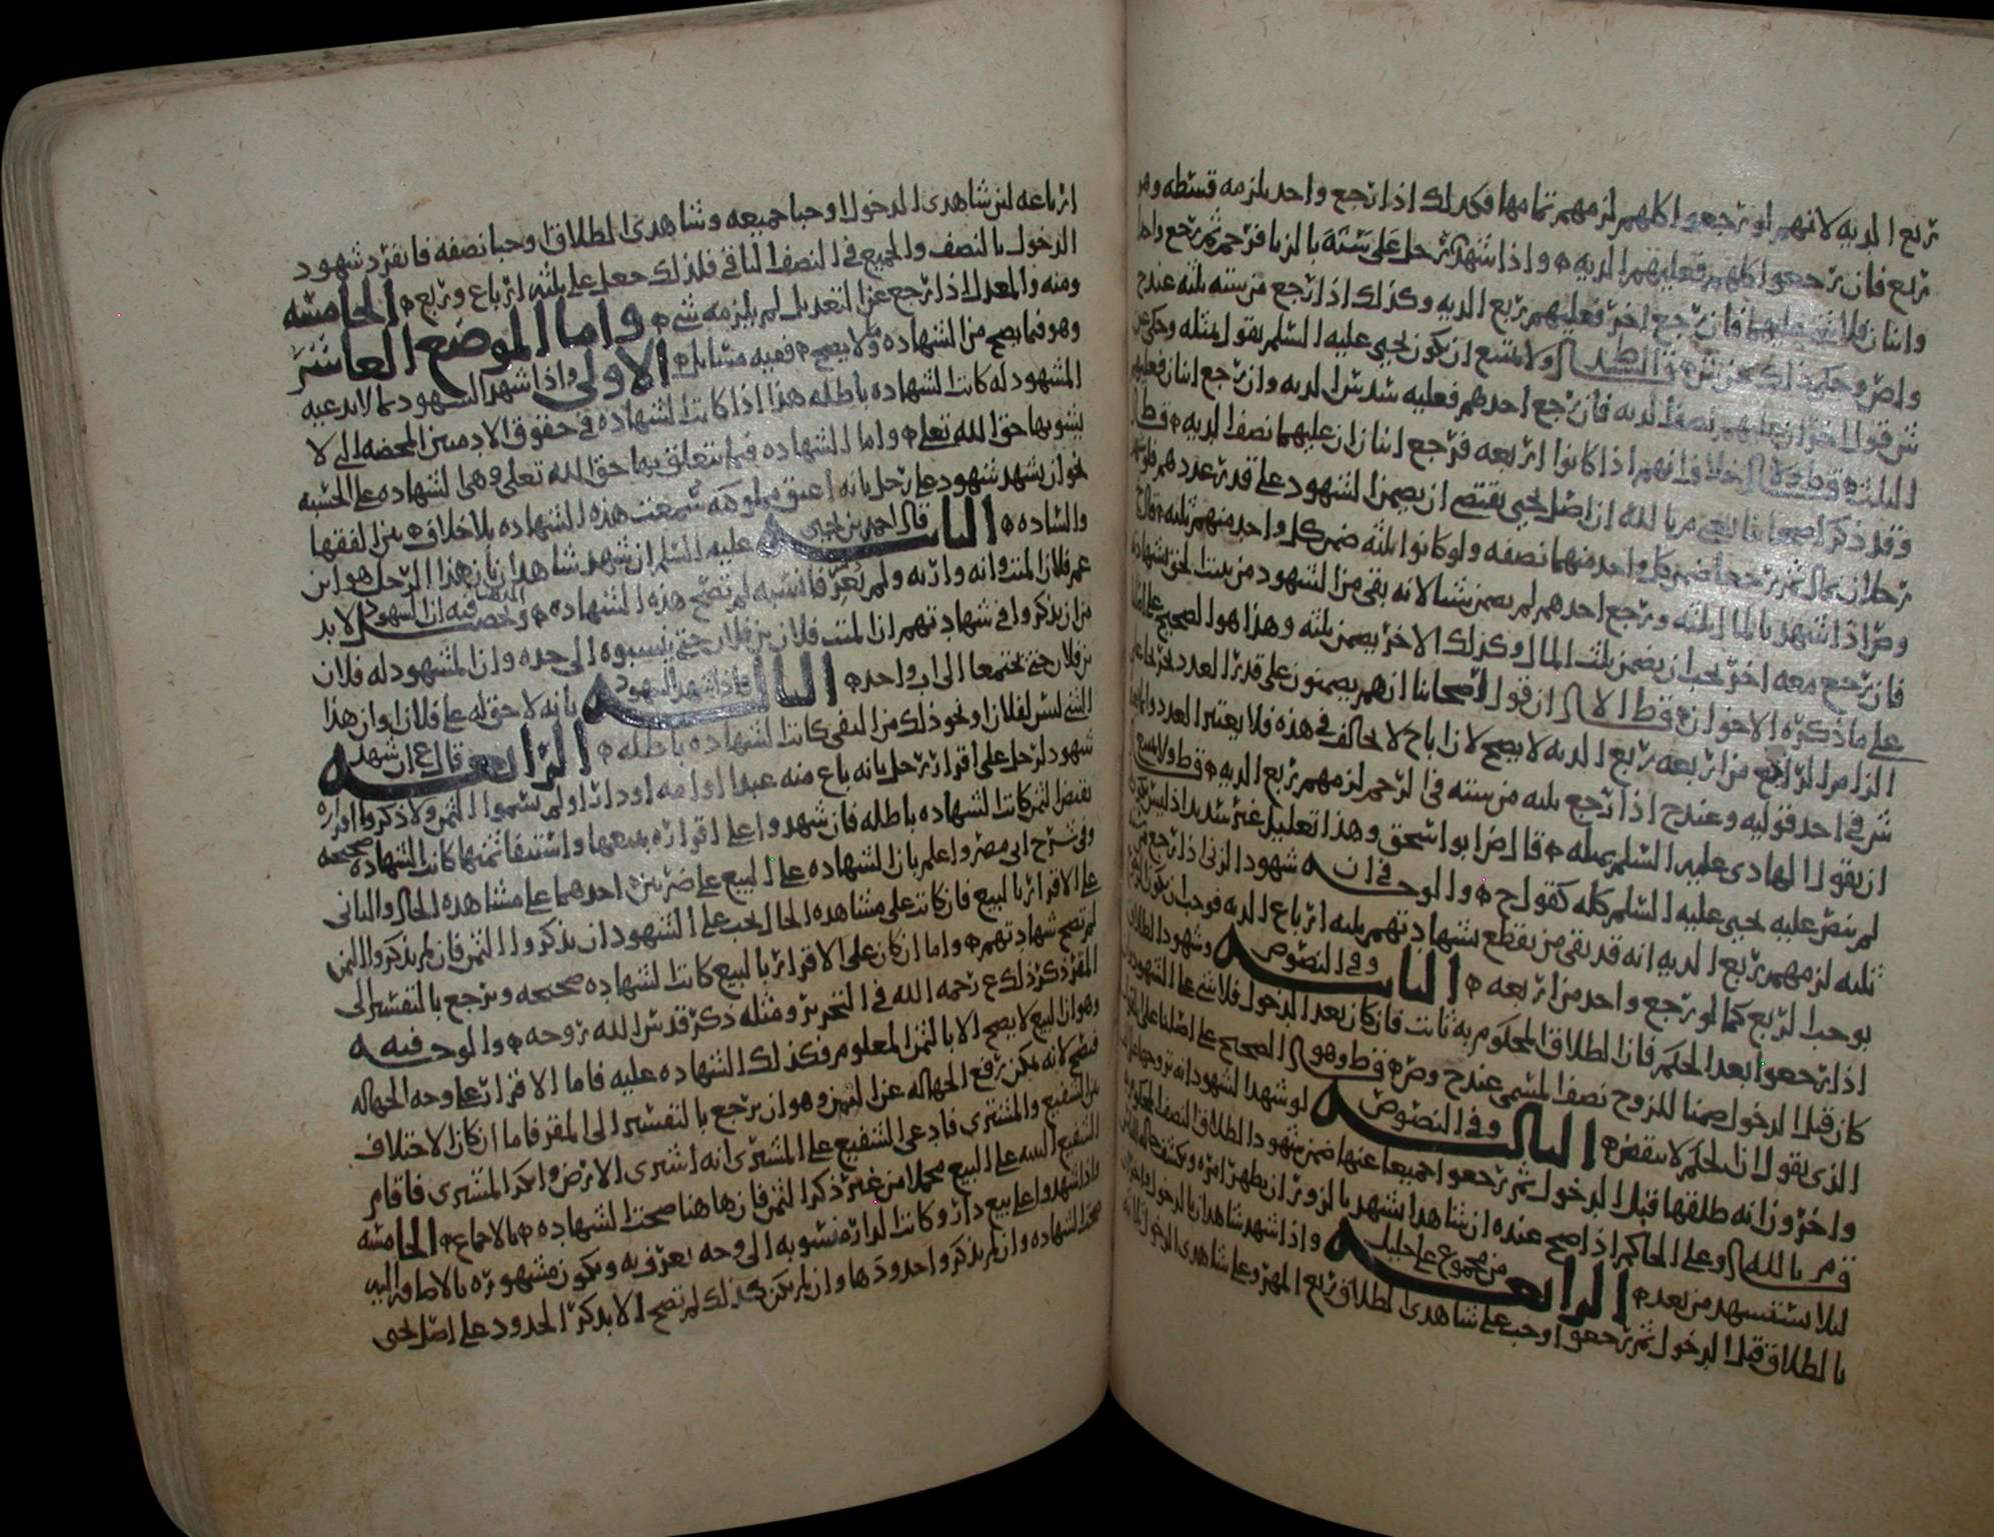 ربع الدية لانهم لو رجعوا كلهم لزمهم تمامها فكذلك اذا رجع واحد يلزمه قسطه وهو
ربع فان رجعوا كلهم فعليهم الدية واذا شهد على رجل ستة بالزنا فرجم ثم رجع واحد
واثنان فلا شي عليهما فان رجع اخر فعليهم ربع الدية وكذلك اذا رجع من ستة ثلثه عندح
ولا يمتنع ان يكون يحيى عليه السلم يقول بمثله وحكى عن
ش قولا اخر ان عليهم نصف الدية فان رجع احدهم فعليه سدس الدية وان رجع اثنان فعليهم
الثلث خلاف انهم اذا كانوا اربعه فرجع اثنان ان عليهما نصف الدية
وقد ذكر اصحابنا ان اصل يحيى يقتضي ان يضمن الشهود على قدر عددهم
رجلان بمال ثم رجعا ضمن كل واحد منهما نصفه ولو كانوا ثلثه ضمن كل واحد منهم ثلثه
وص اذا شهد بالمال ثلثه ورجع احدهم لم يضمن شيا لانه بقي من الشهود من يثبت الحق بشهادته
فان رجع معه اخر يجب ان يضمن ثلث المال وكذلك الاخر يضمن ثلثه وهذا هو الصحيح على
على ما ذكره الاخوان ان قول اصحابنا انهم يضمنون على قدر العدد
الزام الرابع من اربعه ربع الدية لا يصح لان اباح لا يخالف في هذه فلا يعتبر العدد
ش في احد قوليه وعندح اذا رجع ثلثه من سته في الرجم لزمهم ربع الدية
ان يقول الهادي عليه السلم بمثله قال ض ابو اسحق وهذا تعليل غير سديد اذ ليس
لم ينص عليه يحيى عليه السلم كله كقول ح والوجه في ان شهود الزنى اذا رجع من
ثلثه لزمهم ربع الدية انه قد بقي من يقطع بشهادتهم ثلثه ارباع الدية فوجب ان يكون
يوجب الربع كما لو رجع واحد من اربعه الثانيه وفي النصوص وشهود الطلاق
اذا رجعوا بعد الحكم فان الطلاق المحكوم به ثابت فان كان بعد الدخول فلا شي على الشهود
كان قبل الدخول ضمنا للزوج نصف المسمى عندح وص وهو الصحيح على اصلنا
الذي يقول ان الحكم لا ينقض الثالثه وفي النصوص لو شهد الشهود انه تزوجها
واخرون انه طلقها قبل الدخول ثم رجعوا جميعا عنها ضمن شهود الطلاق النصف
ق م بالله وعلى الحاكم اذا صح عنده ان شاهدا يشهد بالزور ان يظهر امره ويكشف حاله
ليلا يستشهد من بعده الرابعه من مجموع على خليل واذا شهد شاهدان بالدخول
بالطلاق قبل الدخول ثم رجعوا وجب على شاهدي الطلاق ربع المهر وعلى شاهدي الدخول ثلثه
ارباعه لان شاهدي الدخول اوجبا جميعه وشاهدي الطلاق اوجبا نصفه فانفرد شهود
الدخول بالنصف والجميع في النصف الباقي فلذلك جعل عليه ثلثه ارباع وربع الخامسه
ومنه والمعدل اذا رجع عن التعديل لم يلزمه شي واما الموضع العاشر
وهو فيما يصح من الشهاده وما لا يصح ففيه مسايل الاولى واذا شهد الشهود بما لا يدعيه
المشهود له كانت الشهاده باطله هذا اذا كانت الشهاده في حقوق الادميين المحضه التي لا
يشوبها حق الله تعلى واما الشهاده فيما يتعلق بها حق الله تعلى وهي الشهاده على الحسبه
نحو ان يشهد شهود على رجل بانه اعتق مملوكه سمعت هذه الشهاده بلا خلاف بين الفقها
والساده الثانيه قال احمد بن يحيى عليه السلم ان شهد شاهدان بان هذا الرجل هو ابن
عم فلان الميت وانه وارثه ولم يعرفا نسبه لم تصح هذه الشهاده وتحصيله فيه ان الشهود لا بد
من ان يذكروا في شهادتهم ان الميت فلان بن فلان حتى ينسبوه الى جده وان المشهود له فلان
بن فلان حتى يجتمعا الى اب واحد الثالثه واذا شهد الشهود بانه لا حق له على فلان او ان هذا
الشي ليس لفلان او نحو ذلك من النفي كانت الشهاده باطله الرابعه قال ع ان شهد
شهود لرجل على اقرار رجل بانه باع منه عبدا او امه او دارا ولم يسموا الثمن ولا ذكروا اقراره
بقبض الثمن كانت الشهاده باطله فان شهدوا على اقراره ببيعها واستيفا ثمنها كانت الشهاده صحيحه
وفي شرح ابي مضر واعلم بان الشهاده على البيع على ضربين احدهما على مشاهده الحال والثاني
على الاقرار بالبيع فان كانت على مشاهده الحال يجب على الشهود ان يذكروا الثمن فان لم يذكروا الثمن
لم تصح شهادتهم واما ان كان على الاقرار بالبيع كانت الشهاده صحيحه ويرجع بالتفسير الى
المقر ذكر ذلك ع رحمه الله في التحرير ومثله ذكر قدس الله روحه والوجه فيه
وهو ان البيع لا يصح الا بالثمن المعلوم فكذلك الشهاده عليه فاما الاقرار على وجه الجهاله
فيصح لانه يمكن رفع الجهاله عن الثمن وهو ان يرجع بالتفسير الى المقر فاما ان كان الاختلاف
بين الشفيع والمشتري فادعى الشفيع على المشتري انه اشترى الارض وانكر المشتري فاقام
الشفيع البينه على البيع مجملا من غير ذكر الثمن فان هاهنا صحت الشهاده بالاجماع الخامسه
واذا شهدوا على بيع دار وكانت الدار منسوبه الى وجه يعرف به ويكون مشهوره بالاضافه اليه
صحت الشهاده وان لم يذكروا حدودها وان لم يكن كذلك لم تصح الا بذكر الحدود على اصل يحيى